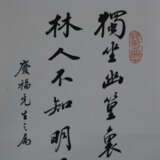 獨坐幽篁裏
林人不知明
慶福先生之屬